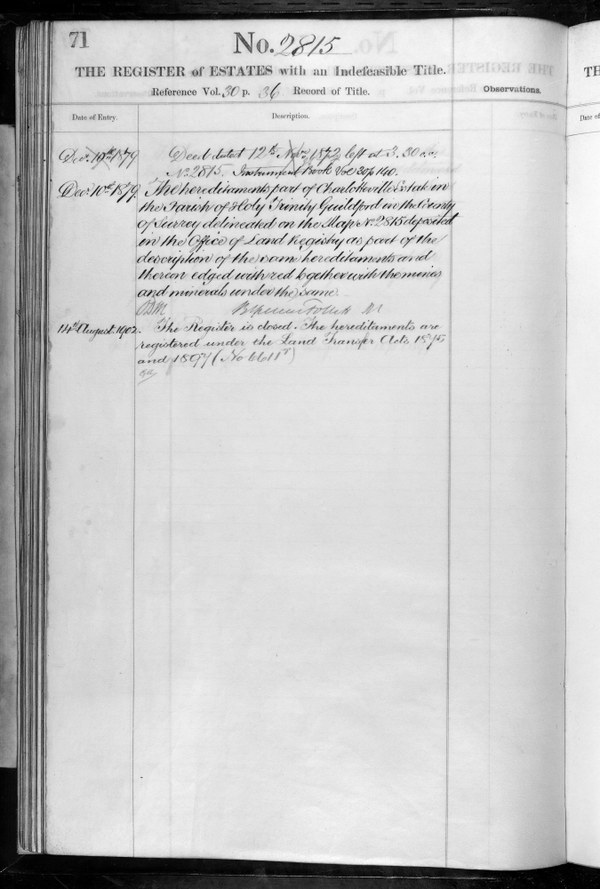 71
No. 2815
THE REGISTER of ESTATES with an Indefeasible Title.
Reference Vol. 30 p. 36 Record of Title.
Observations.
Date of Entry.
Description.
Decr. 10th 1879
Deed dated 12th 1872 left at 3.30 o.c.
No. 2815. Instrument Book Vol 30 p 140.
Decr. 10th 1879.
The hereditaments part of Charlotteville Estate in
the Parish of Holy Trinity Guildford in the County
of Surrey delineated on the Map No. 2815 deposited
in the Office of Land Registry as part of the
description of the same hereditaments and
thereon edged with red together with the mines
and minerals under the same
14th August 1902.
The Register is closed. The hereditaments are
registered under the Land Transfer Acts 1875
and 1897 (No
TH
Date of